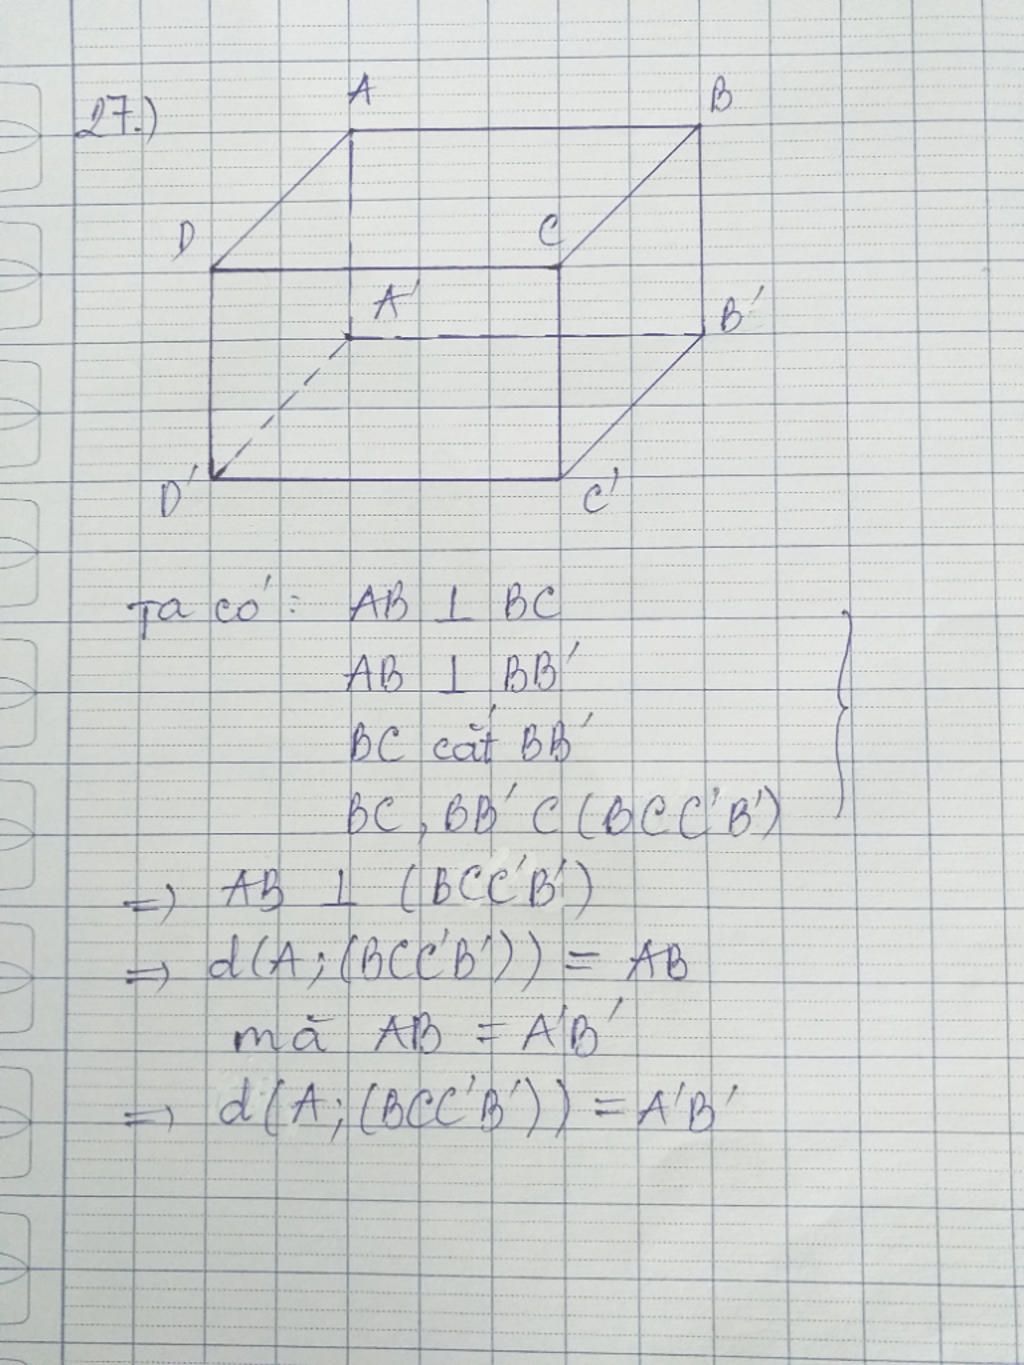 27.)
A
B
D
C
A'
B'
D'
C'
Ta có: AB ⊥ BC
AB ⊥ BB'
BC cắt BB'
BC, BB' ⊂ (BCC'B') }
=> AB ⊥ (BCC'B')
=> d(A; (BCC'B')) = AB
mà AB = A'B'
=> d(A; (BCC'B')) = A'B'